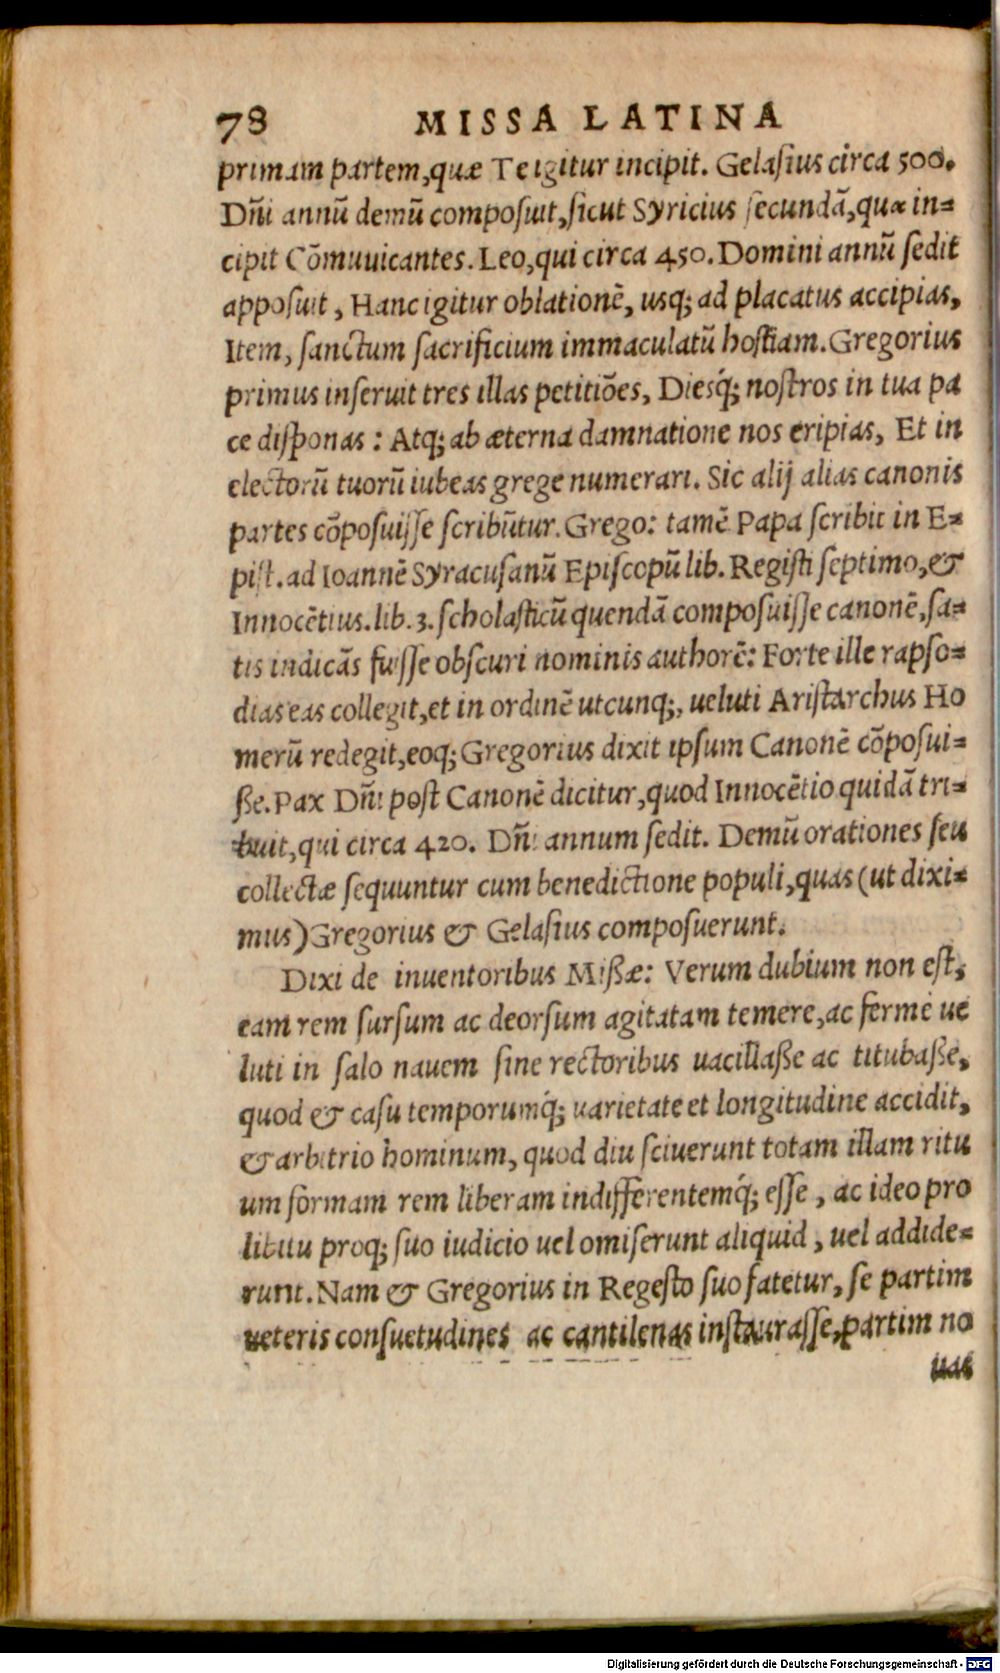 78 MISSA LATINA
primam partem,quæ Te igitur incipit. Gelasius circa 500.
Dñi annũ demũ composuit,sicut Syricius secundã,quæ in=
cipit Cõmuuicantes. Leo,qui circa 450. Domini annũ sedit
apposuit, Hanc igitur oblationẽ, usq; ad placatus accipias,
Item, sanctum sacrificium immaculatũ hostiam. Gregorius
primus inseruit tres illas petitiões, Diesq́; nostros in tua pa
ce disponas : Atq; ab æterna damnatione nos eripias, Et in
electorũ tuorũ iubeas grege numerari. Sic alij alias canonis
partes cõposuisse scribũtur. Grego: tamẽ Papa scribit in E=
pist. ad Ioannẽ Syracusanũ Episcopũ lib. Registi septimo,&
Innocẽtius.lib.3. scholasticũ quendã composuisse canonẽ,sa=
tis indicãs fuisse obscuri nominis authorẽ: Forte ille rapso=
dias eas collegit,et in ordinẽ utcunq;, ueluti Aristarchus Ho
merũ redegit,eoq; Gregorius dixit ipsum Canonẽ cõposui=
ße. Pax Dñi post Canonẽ dicitur,quod Innocẽtio quidã tri=
buit,qui circa 420. Dñi annum sedit. Demũ orationes seu
collectæ sequuntur cum benedictione populi,quas (ut dixi=
mus) Gregorius & Gelasius composuerunt.
Dixi de inuentoribus Mißæ: Verum dubium non est,
eam rem sursum ac deorsum agitatam temere,ac fermè ue
luti in salo nauem sine rectoribus uacillaße ac titubaße,
quod & casu temporumq́; uarietate et longitudine accidit,
& arbitrio hominum, quod diu sciuerunt totam illam ritu
um formam rem liberam indifferentemq́; esse, ac ideo pro
libitu proq; suo iudicio uel omiserunt aliquid, uel addide=
runt. Nam & Gregorius in Regesto suo fatetur, se partim
ueteris consuetudines ac cantilenas instaurasse,partim no
uas
Digitalisierung gefördert durch die Deutsche Forschungsgemeinschaft - DFG